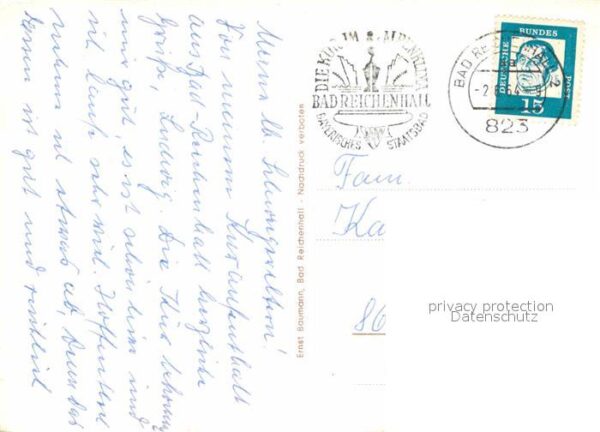 Meine lb. Schwiegereltern!
Von meinem Kuraufenthalt
aus Bad Reichenhall herzliche
Grüße Ludwig. Die Kur bekommt
mir gut, es ist schön hier und
ich laufe sehr viel. Hoffentlich
nehme ich etwas ab, denn das
Essen ist gut und reichlich
Ernst Baumann, Bad Reichenhall - Nachdruck verboten
DIE KUR IM ALPENKLIMA
BAD REICHENHALL
BAYERISCHES STAATSBAD
BAD REICHENHALL
823
DEUTSCHE BUNDES POST
15
Fam.
Ka
86
privacy protection
Datenschutz